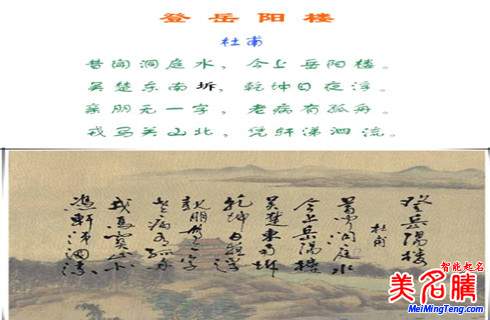 登岳阳楼
杜甫
昔闻洞庭水，今上岳阳楼。
吴楚东南坼，乾坤日夜浮。
亲朋无一字，老病有孤舟。
戎马关山北，凭轩涕泗流。
登岳陽楼
杜甫
昔聞洞庭水
今上岳陽楼
吴楚東南坼
乾坤日夜浮
親朋無一字
老病有孤舟
戎馬關山北
憑軒涕泗流
智能起名
美名腾
MeiMingTeng.com